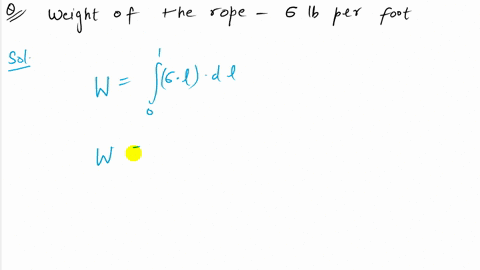 Q Weight of the rope - 6 lb per foot
Sol:
W = ∫₀¹ (6·l)·dl
W =